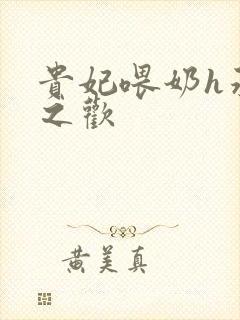 貴妃喂奶h
之歡
黄美真